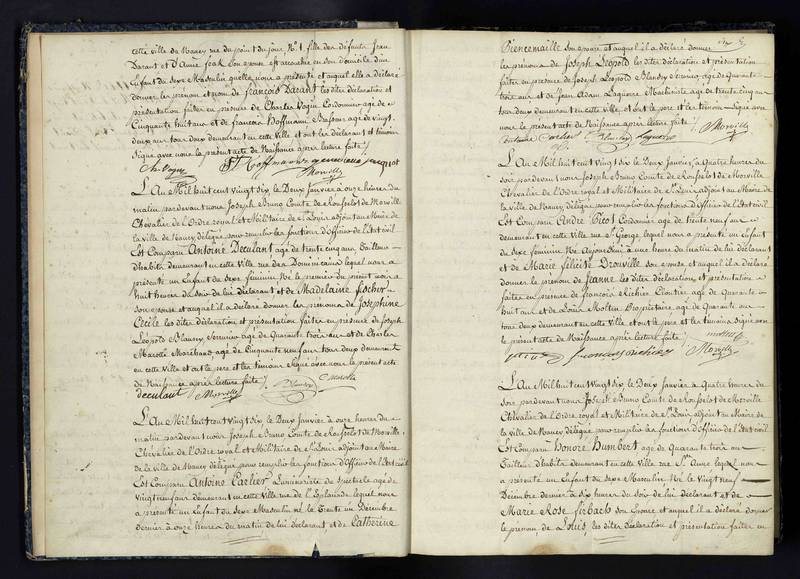 cette ville de Nancy rue du point du jour, N.° 1, fille des défunts Jean
Darant et d'Anne son épouse est accouchée en son domicile d'un
Enfant du Sexe Masculin qu'elle nous a présenté et auquel elle a déclaré
donner les prénom et nom de françois Darant les dites déclaration et
présentation faites en présence de Charles Vogin Cordonnier âgé de
Cinquante huit ans et de francois Hoffmann Brasseur âgé de vingt
deux ans tous deux demeurant en cette Ville et ont les déclarant et témoins
Signé avec nous le présent acte de Naissance après lecture faite
Ch. Vogin Hoffmann
Morville
L'An Mil huit cent Vingt six le Deux Janvier à onze heures du
matin pardevant nous Joseph Bruno Comte de Rousselot de Morville
Chevalier de l'Ordre royal et Militaire de St Louis adjoint au Maire de
la ville de Nancy délégué pour remplir les fonctions d'Officier de l'Etat civil
Est Comparu Antoine Deculant âgé de trente cinq ans Tailleur
d'habits demeurant en cette Ville rue des Dominicains lequel nous a
présenté un Enfant du sexe féminin Né le premier du présent mois à
huit heures du Soir de lui déclarant et de Madelaine fischer
son épouse et auquel il a déclaré donner les prénoms de Josephine
Cécile les dites déclaration et présentation faites en présence de Joseph
Léopold Blandry Serrurier âgé de Quarante trois ans et de Charles
Marotte Marchand, âgé de Cinquante neuf ans tous deux demeurant
en cette Ville et ont les père et les témoins Signé avec nous le présent acte
de Naissance après lecture faite
deculant Morville Blandry C Marotte
L'An Mil huit cent Vingt six le Deux Janvier à onze heures du
matin pardevant nous Joseph Bruno Comte de Rousselot de Morville
Chevalier de l'Ordre royal et Militaire de St Louis adjoint au Maire
de la ville de Nancy délégué pour remplir les fonctions d'Officier de l'Etat civil
Est Comparu Antoine Carlier âgé de
vingt neuf ans demeurant en cette Ville rue de lequel nous
a présenté un Enfant du Sexe Masculin né le Trente un Décembre
dernier à onze heures du matin de lui déclarant et de Catherine
Biencemaille son épouse et auquel il a déclaré donner
les prénoms de Joseph Léopold les dites déclaration et présentation
faites en présence de Joseph Léopold Blandry âgé de Quarante
trois ans et de Jean Adam Laguerre âgé de trente cinq ans
tous deux demeurant en cette ville et ont le père et les témoins Signé avec
nous le présent acte de Naissance après lecture faite
Antoine Carlier Blandry Laguerre Morville
L'An Mil huit cent Vingt six le Deux Janvier, à Quatre heures du
soir pardevant nous Joseph Bruno Comte de Rousselot de Morville
Chevalier de l'Ordre royal et Militaire de St Louis adjoint au Maire de
la ville de Nancy délégué pour remplir les fonctions d'Officier de l'Etat civil
Est Comparu André Picot Cordonnier âgé de trente neuf ans
demeurant en cette Ville rue St George, lequel nous a présenté un Enfant
du sexe féminin Né Aujourd'hui à une heure du matin de lui déclarant
et de Marie félicité Drouville son épouse et auquel il a déclaré
donner le prénom de Jeanne les dites déclaration et présentation
faites en présence de francois Richier Cloutier âgé de Quarante
huit ans et de Louis Propriétaire âgé de Quarante ans
tous deux demeurant en cette ville et ont le père et les témoins Signé avec nous
le présent acte de Naissance après lecture faite
francois richier Morville
L'An Mil huit cent Vingt six le Deux Janvier à Quatre heures du
soir pardevant nous Joseph Bruno Comte de Rousselot de Morville
Chevalier de l'Ordre royal et Militaire de St Louis adjoint au Maire de
la ville de Nancy délégué pour remplir les fonctions d'Officier de l'Etat civil
Est Comparu Honoré Humbert âgé de Quarante trois ans
Tailleur d'habits demeurant en cette Ville rue Ste Anne lequel nous
a présenté un Enfant du Sexe Masculin Né le Vingt neuf
Décembre dernier à Six heures du soir de lui déclarant et de
Marie Rose Firbach son Epouse et auquel il a déclaré donner
le prénom de Louis les dites déclaration et présentation faites en